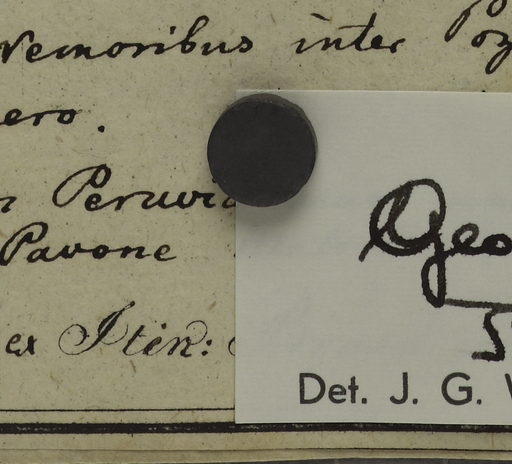 Nemoribus inter Poz
ero.
Peruvia
Pavone
ex Itin:
Geo
5
Det. J. G. W